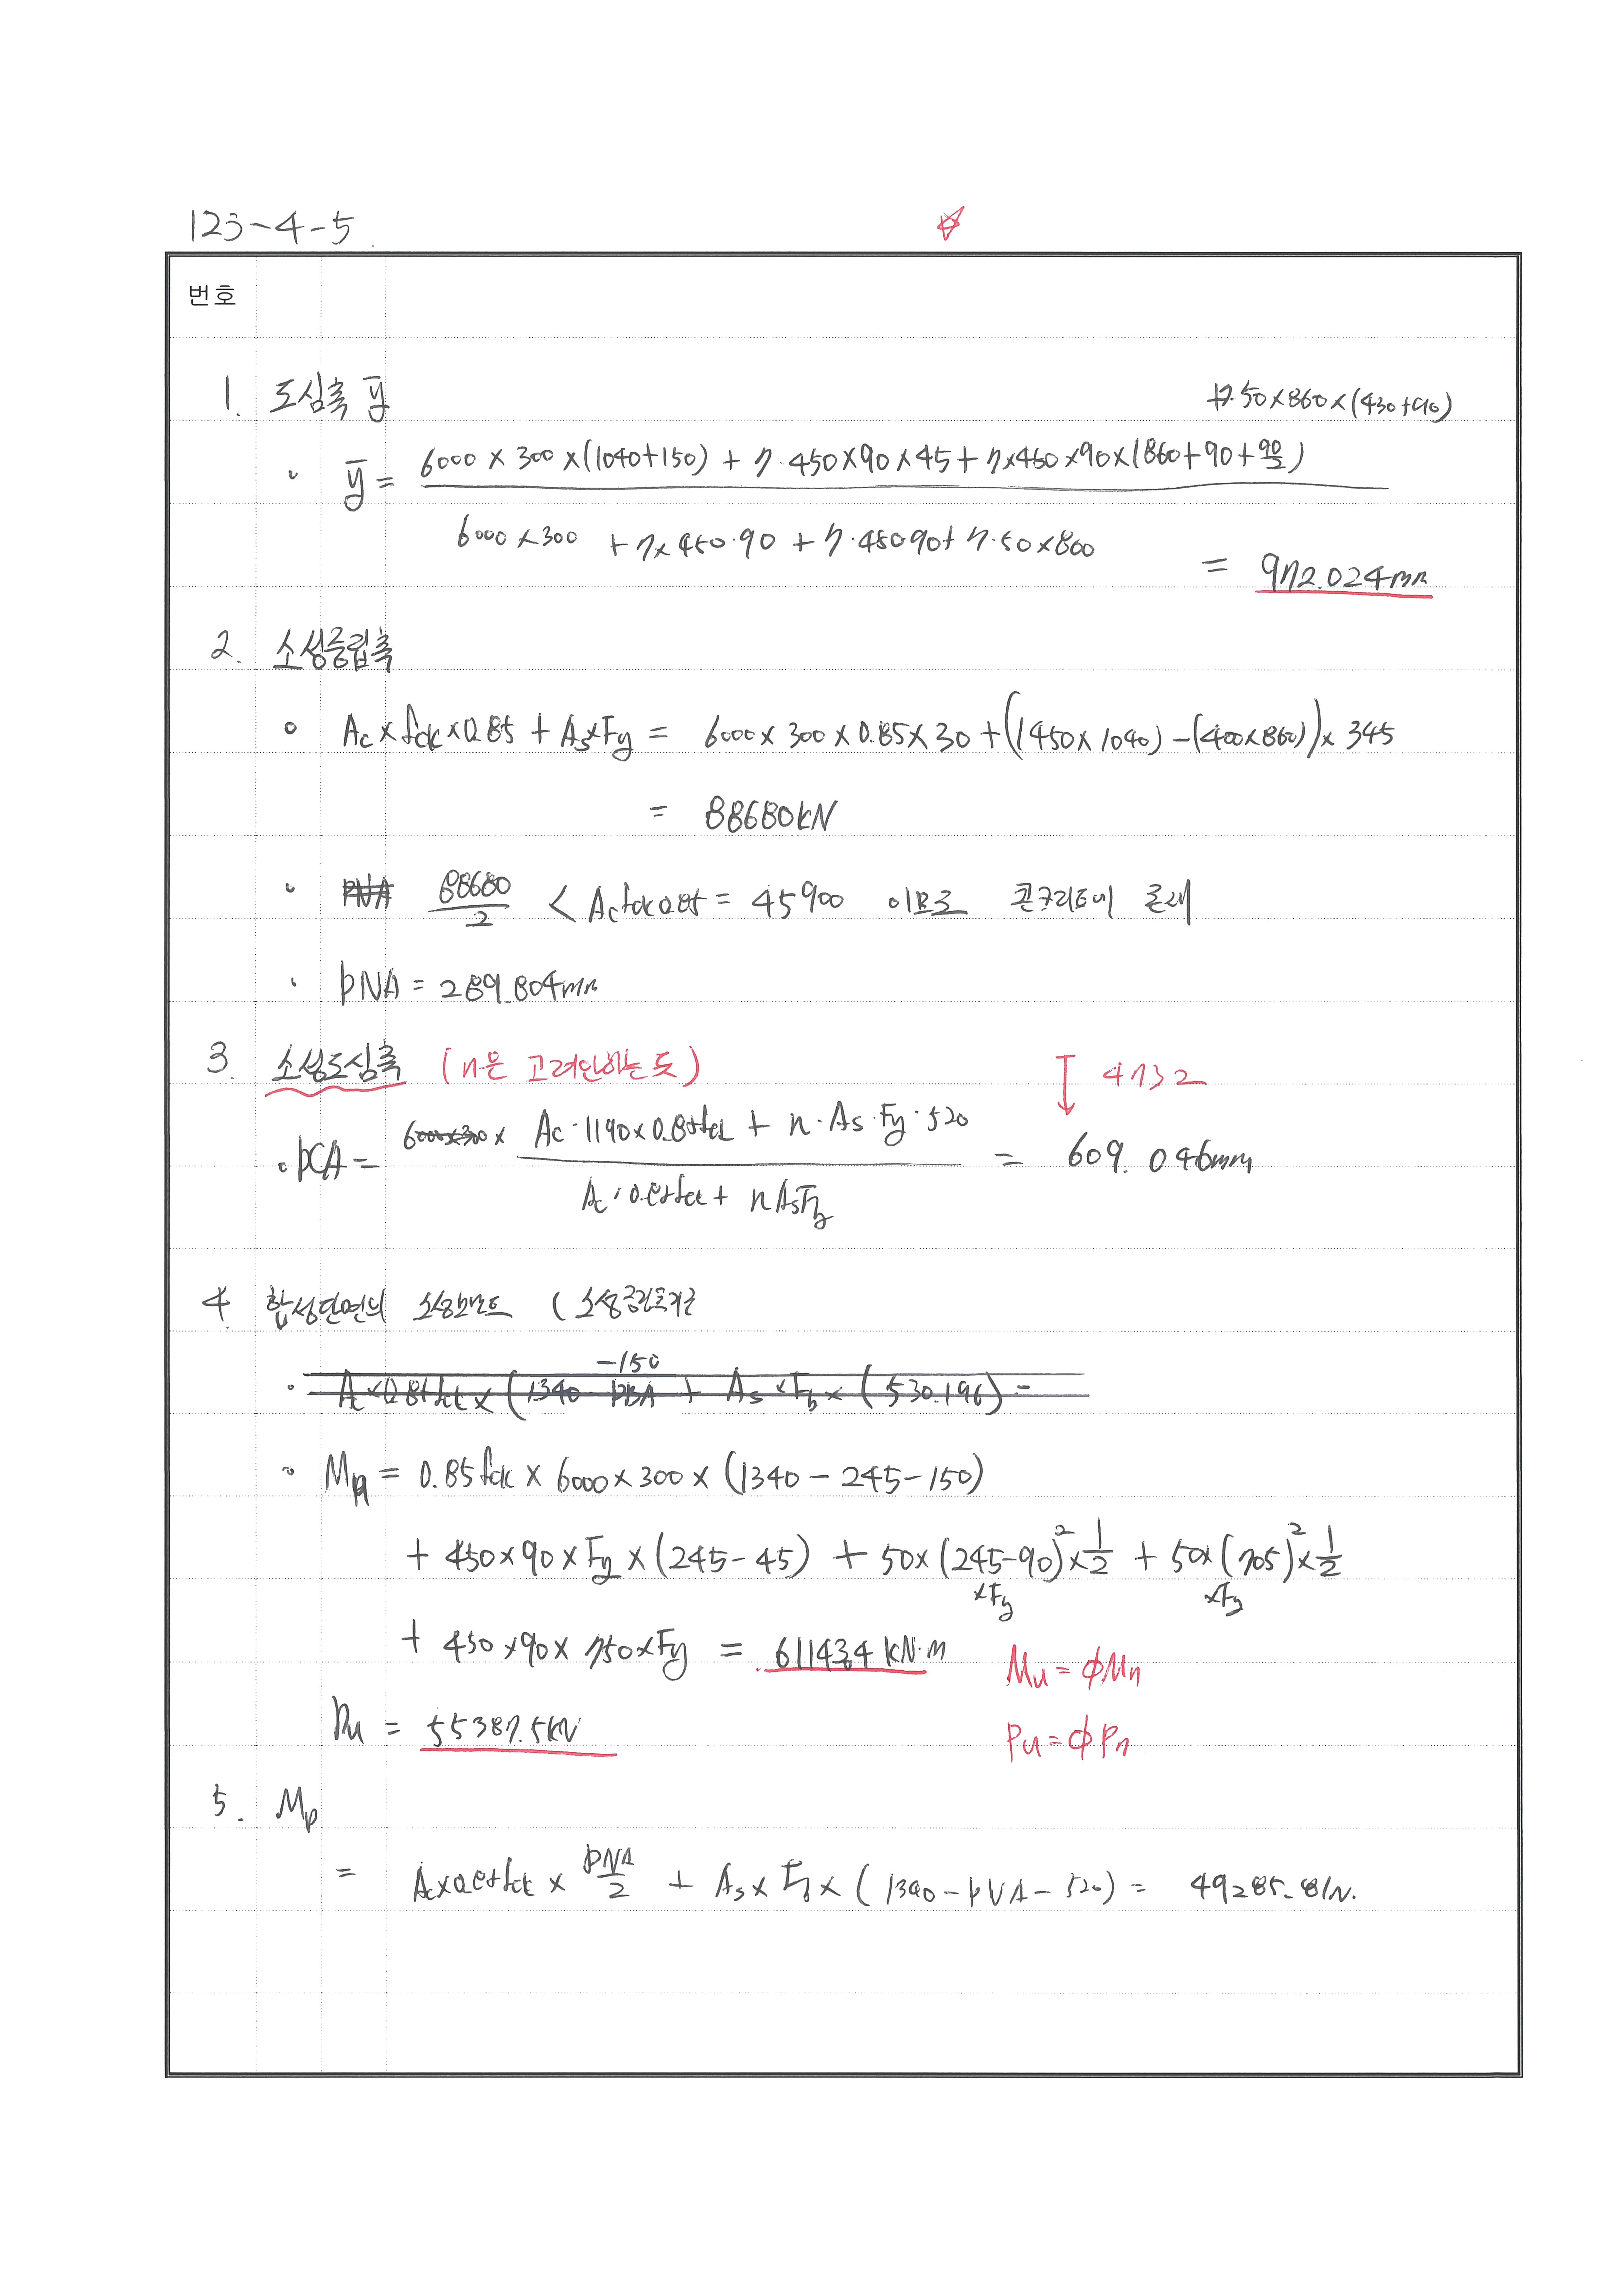 123-4-5
번호
1. 도심축 ȳ
+7·50×860×(430+90)
ȳ = 6000 × 300 ×(1040+150) + 7·450×90×45 + 7×450×90×(860+90+90/2)
6000×300 + 7×450·90 + 7·450·90 + 7·50×860
= 972.024mm
2. 소성중립축
Ac×fck×0.85 + As×Fy = 6000×300×0.85×30 + ((450×1040)-(400×860))×345
= 88680kN
88680/2 < Acfck0.85 = 45900 이므로 콘크리트에 존재
PNA = 289.804mm
3. 소성도심축 (n은 고려안하는 듯)
4732
PCA = Ac·1190×0.85fck + n·As·Fy·520
Ac·0.85fck + nAsFy
= 609.046mm
4 합성단면의 소성모멘트 (소성중립축기준
-150
Ac×0.85fck×(1340-PBA + As×Fy×(530.196) =
Mn = 0.85fck × 6000×300 × (1340-245-150)
+ 450×90×Fy×(245-45) + 50×(245-90)²×1/2 + 50×(705)²×1/2
×Fy ×Fy
+ 450×90×750×Fy = 61143.4 kN·m Mu = ϕMn
Pu = 55387.5kN Pu = ϕPn
5. Mp
= Ac×0.85fck × PNA/2 + As×Fy×(1340-PNA-520) = 49285.8